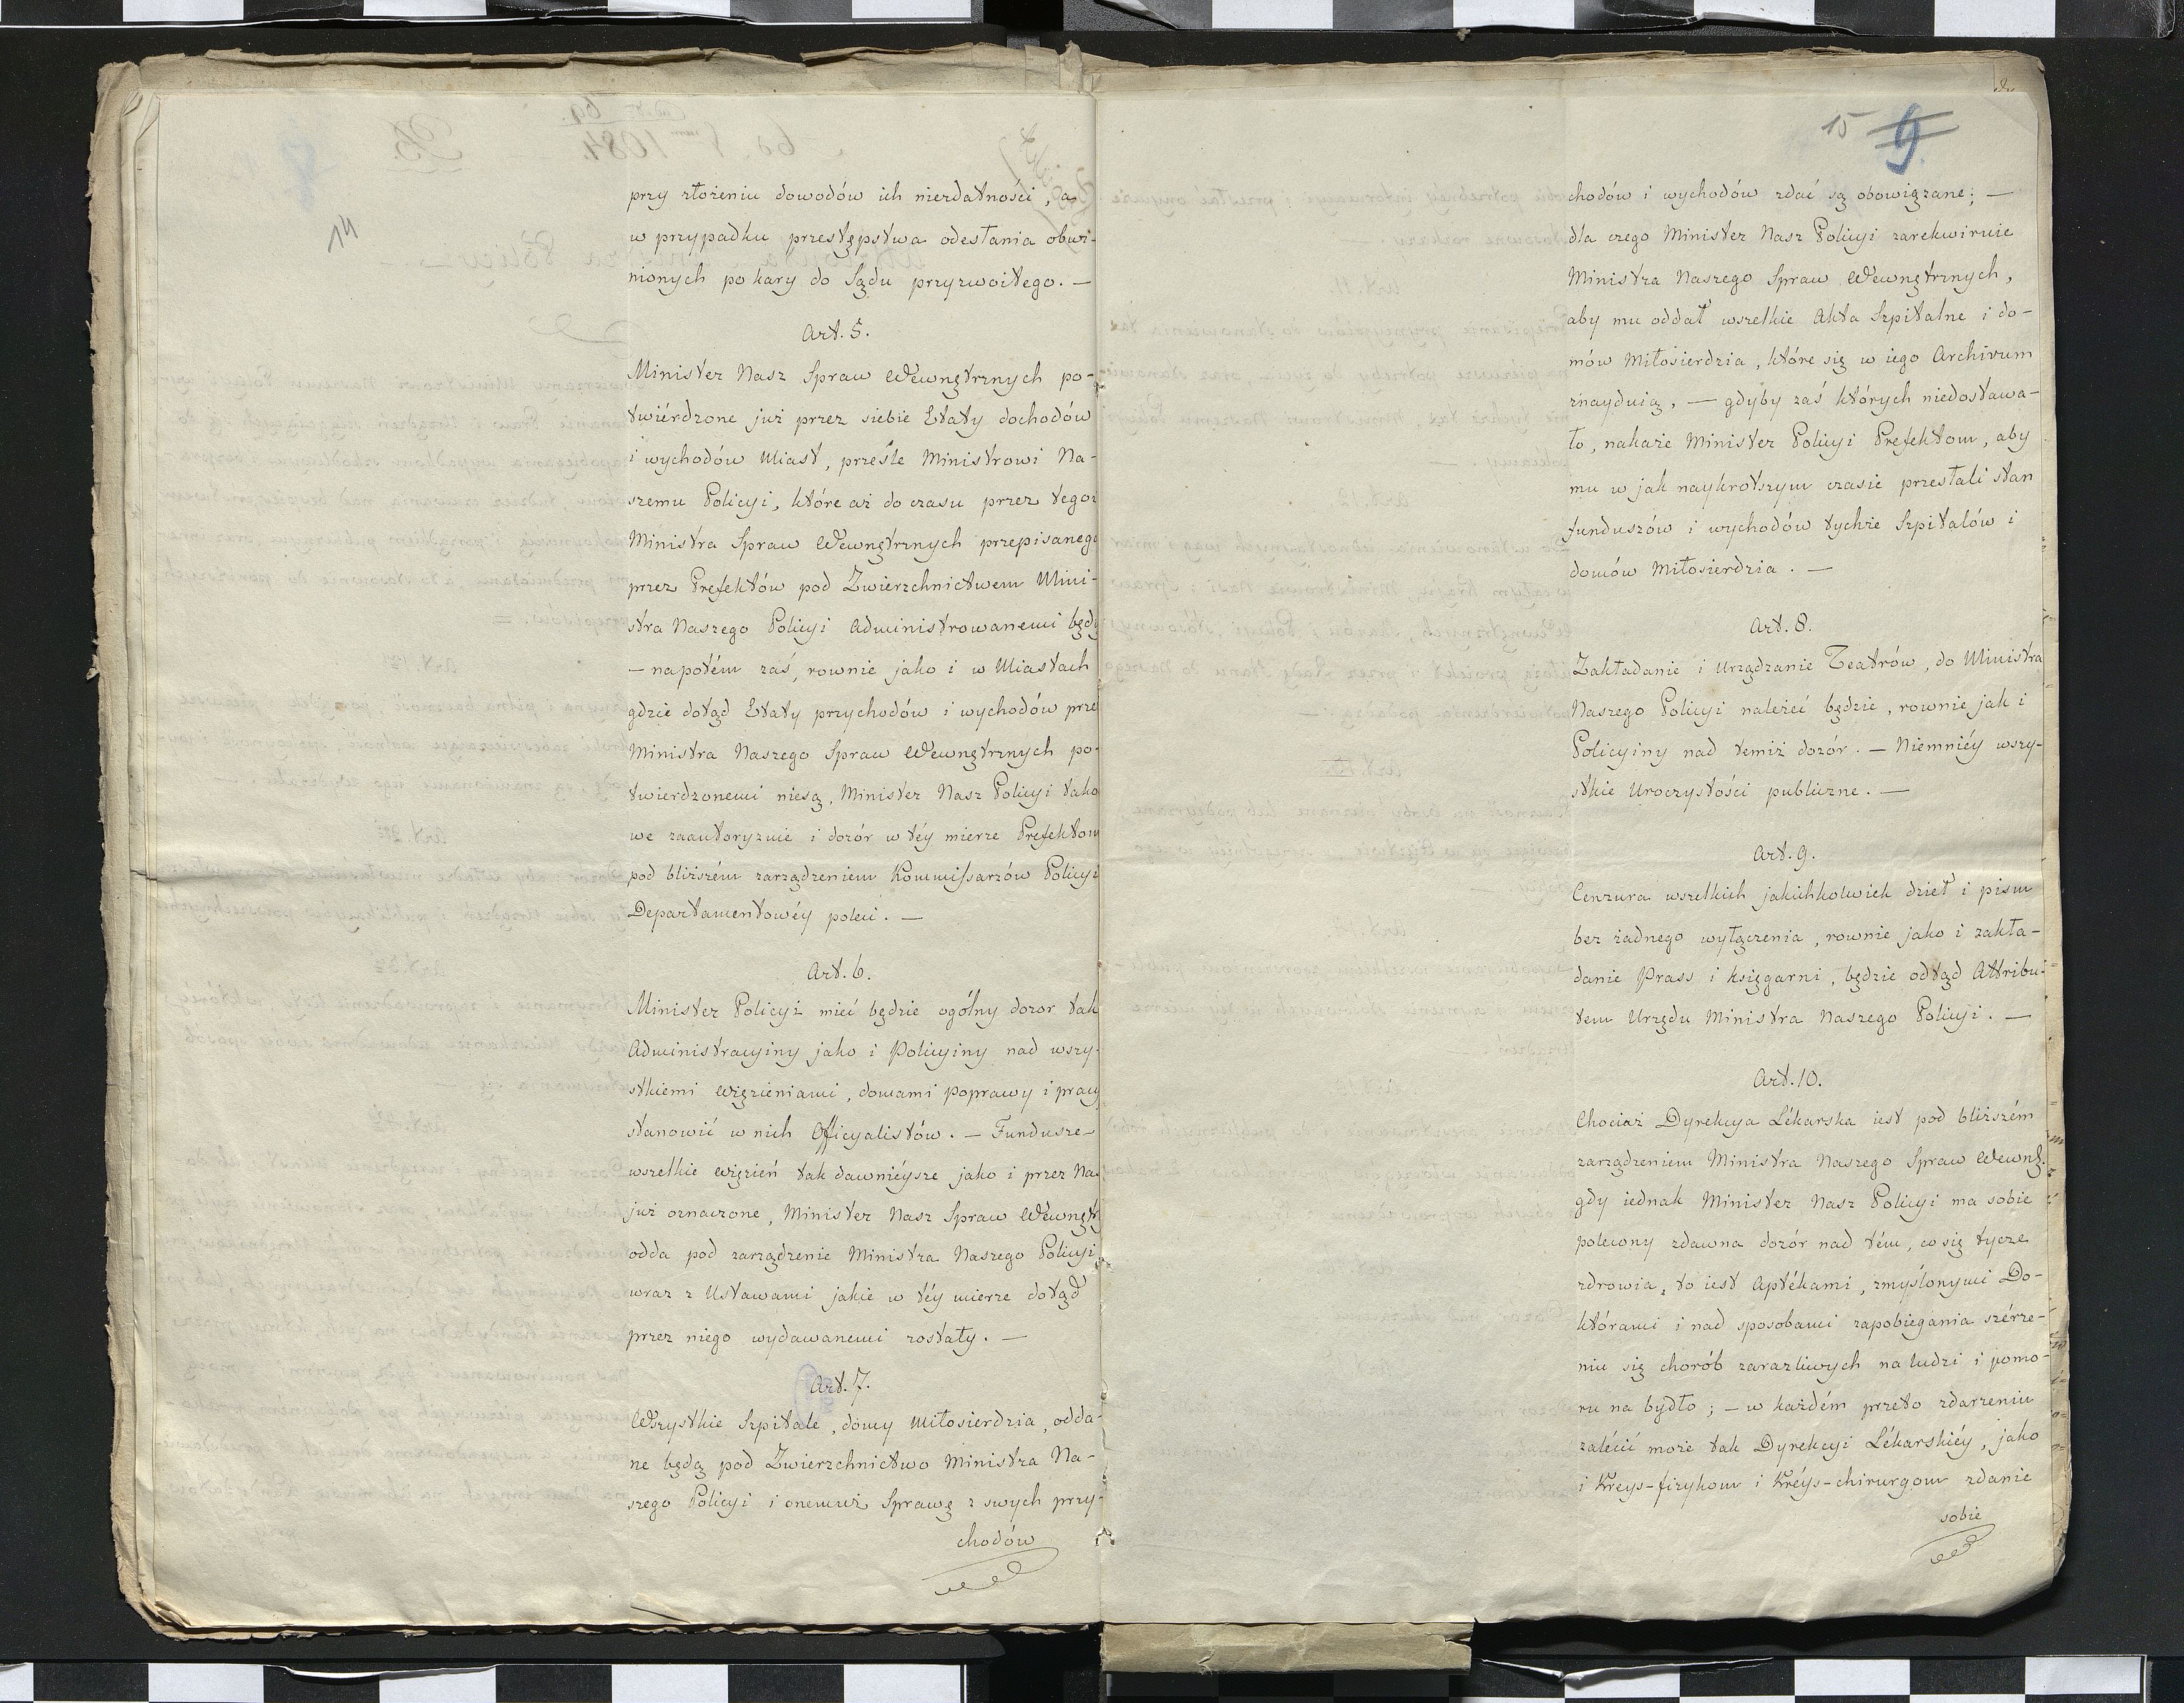 14
przy złożeniu dowodów ich niezdatności, a
w przypadku przestępstwa odesłania obwi-
nionych po kary do Sądu przyzwoitego. —
Art. 5.
Minister Nasz Spraw Wewnętrznych po-
twiérdzone już przez siebie Etaty dochodów
i wychodów Miast, prześle Ministrowi Na-
szemu Policyi, które aż do czasu przez tegoż
Ministra Spraw Wewnętrznych przepisanego
przez Prefektów pod Zwierzchnictwem Mini-
stra Naszego Policyi Administrowanemi będą
— napotém zaś, rownie jako i w Miastach
gdzie dotąd Etaty przychodów i wychodów prze
Ministra Naszego Spraw Wewnętrznych po-
twierdzonemi niesą, Minister Nasz Policyi tako
we zaautoryzuie i dozór w téy mierze Prefektom
pod bliższém zarządzeniem Kommissarzów Policyi
Departamentowéy poleci. —
Art. 6.
Minister Policyi mieć będzie ogólny dozor tak
Administracyiny jako i Policyiny nad wszy-
stkiemi więzieniami, domami poprawy i pracy
stanowić w nich Officyalistów. — Fundusze
wszelkie więzień tak dawniéysze jako i przez Na
już oznaczone, Minister Nasz Spraw Wewnętr
odda pod zarządzenie Ministra Naszego Policyi
wraz z Ustawami jakie w téy mierze dotąd
przez niego wydawanemi zostały. —
Art. 7.
Wszystkie Szpitale, domy Miłosierdzia, odda-
ne będą pod Zwierzchnictwo Ministra Na-
szego Policyi i onemuż Sprawę z swych przy-
chodów
15 9.
chodów i wychodów zdać są obowiązane; —
dla czego Minister Nasz Policyi zarekwiruie
Ministra Naszego Spraw Wewnętrznych,
aby mu oddał wszelkie Akta Szpitalne i do-
mów Miłosierdzia, które się w iego Archivum
znayduią, — gdyby zaś których niedostawa-
ło, nakaże Minister Policyi Prefektom, aby
mu w jak naykrotszym czasie przesłali stan
funduszów i wychodów tychże Szpitalów i
domów Miłosierdzia. —
Art. 8.
Zakładanie i Urządzanie Teatrów, do Ministra
Naszego Policyi należeć będzie, rownie jak i
Policyiny nad temiż dozór. — Niemniéy wszy-
stkie Uroczystości publiczne. —
Art. 9.
Cenzura wszelkich jakichkolwiek dzieł i pism
bez żadnego wyłączenia, rownie jako i zakła-
danie Prass i księgarni, będzie odtąd Attribu-
tem Urzędu Ministra Naszego Policyi. —
Art. 10.
Chociaż Dyrekcya Lékarska iest pod bliższém
zarządzeniem Ministra Naszego Spraw Wewnę.
gdy iednak Minister Nasz Policyi ma sobie
polecony zdawna dozór nad tém, co się tycze
zdrowia, to iest Aptékami, zmyślonymi Do-
którami i nad sposobami zapobiegania szérze-
niu się chorób zaraźliwych na ludzi i pomo-
ru na bydło; — w każdém przeto zdarzeniu
zalécić może tak Dyrekcyi Lékarskiéy, jako
i Kreys-fizykom i Kréys-chirurgom zdanie
sobie